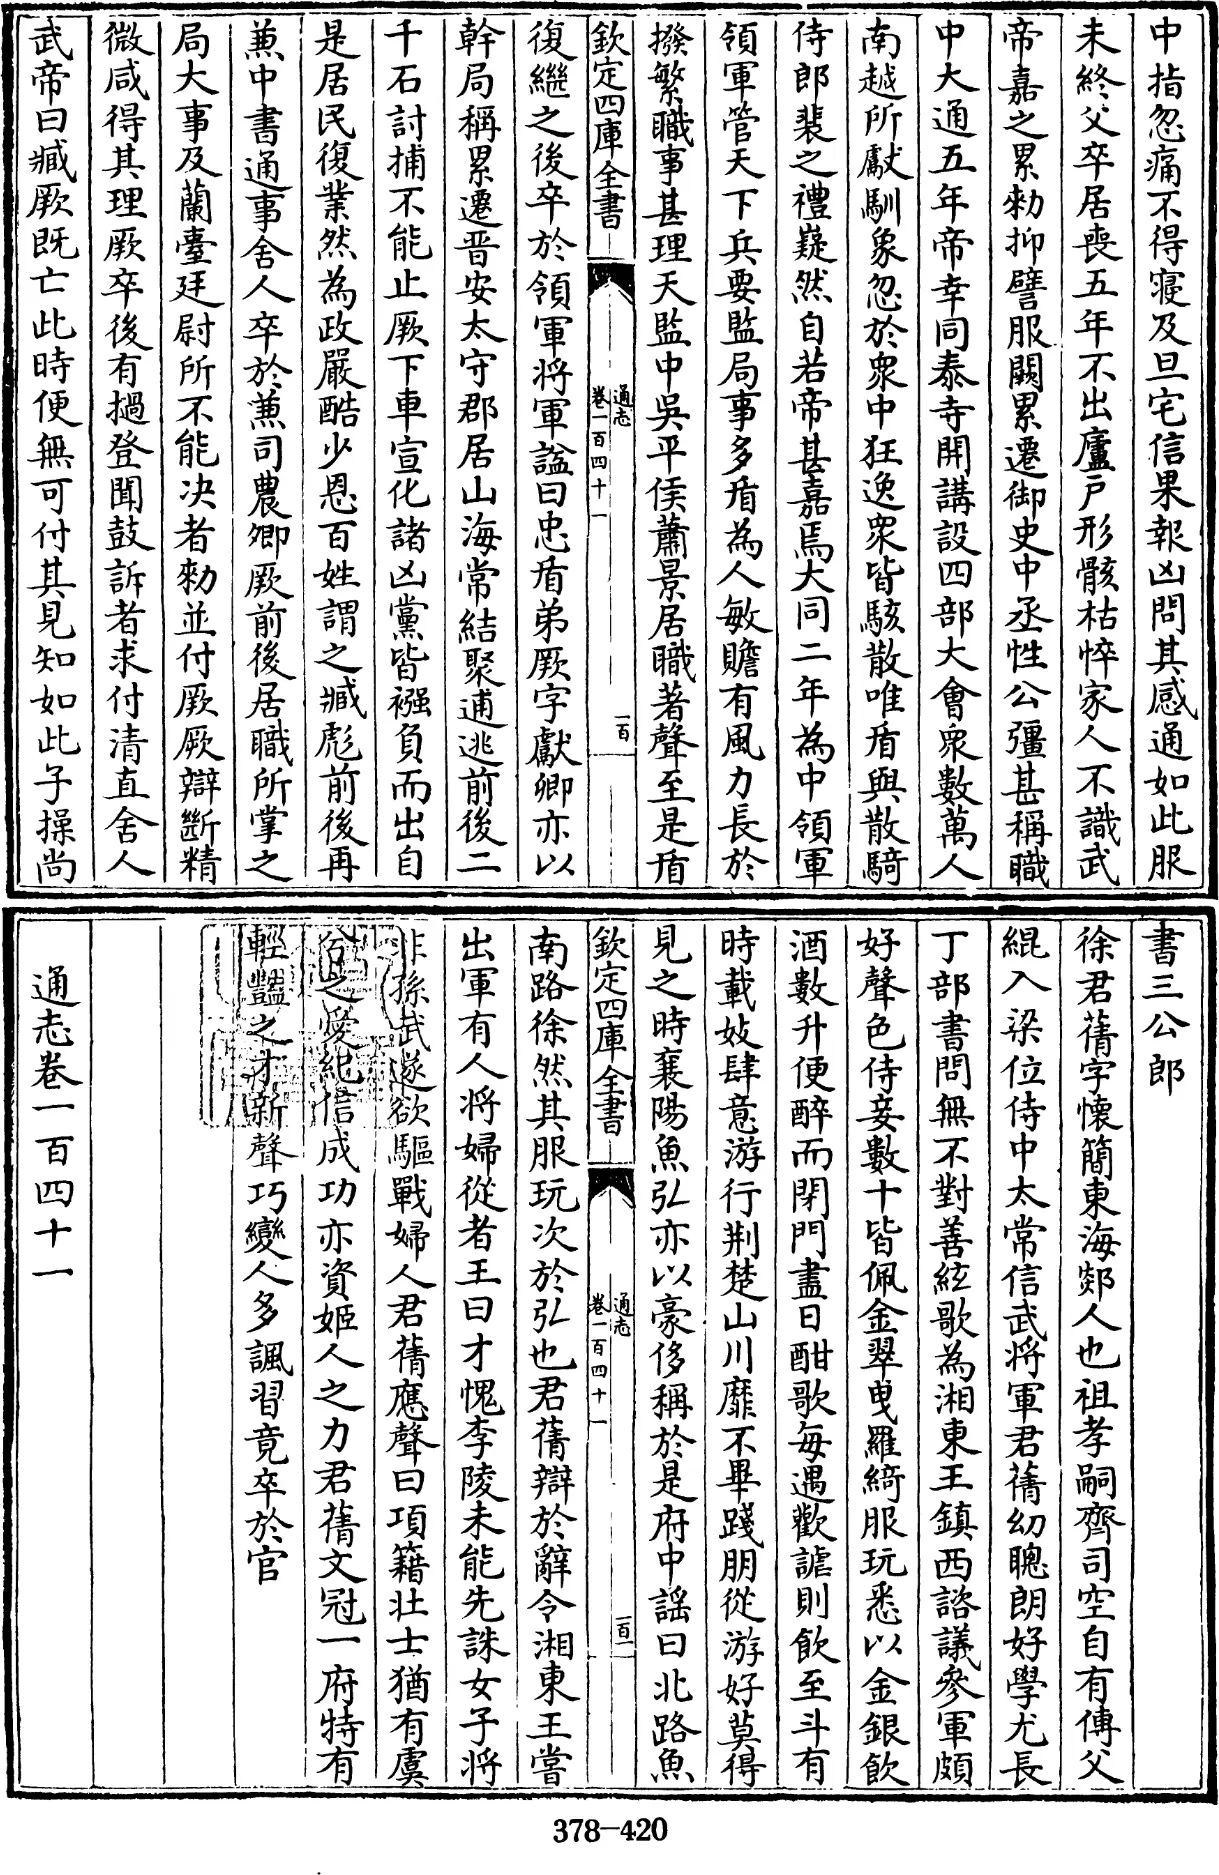 中指忽痛不得寢及旦宅信果報凶問其感通如此服
未終父卒居喪五年不出廬戶形骸枯悴家人不識武
帝嘉之累勅抑譬服闋累遷御史中丞性公彊甚稱職
中大通五年帝幸同泰寺開講設四部大會衆數萬人
南越所獻馴象忽於衆中狂逸衆皆駭散唯盾與散騎
侍郎裴之禮嶷然自若帝甚嘉焉大同二年為中領軍
領軍管天下兵要監局事多盾為人敏贍有風力長於
撥繁職事甚理天監中吳平侯蕭景居職著聲至是盾
欽定四庫全書
通志
卷一百四十一
一百
復繼之後卒於領軍將軍諡曰忠盾弟厥字獻卿亦以
幹局稱累遷晋安太守郡居山海常結聚逋逃前後二
千石討捕不能止厥下車宣化諸凶黨皆襁負而出自
是居民復業然為政嚴酷少恩百姓謂之臧彪前後再
兼中書通事舍人卒於兼司農卿厥前後居職所掌之
局大事及蘭臺廷尉所不能决者勅並付厥厥辯斷精
微咸得其理厥卒後有撾登聞鼓訴者求付清直舍人
武帝曰臧厥既亡此時便無可付其見知如此子操尚
書三公郎
徐君蒨字懷簡東海郯人也祖孝嗣齊司空自有傳父
緄入梁位侍中太常信武將軍君蒨幼聰朗好學尤長
丁部書問無不對善絃歌為湘東王鎮西諮議參軍頗
好聲色侍妾數十皆佩金翠曵羅綺服玩悉以金銀飲
酒數升便醉而閉門盡日酣歌每遇歡謔則飲至斗有
時載妓肆意游行荆楚山川靡不畢踐朋從游好莫得
見之時襄陽魚弘亦以豪侈稱於是府中謡曰北路魚
欽定四庫全書
通志
卷一百四十一
一百一
南路徐然其服玩次於弘也君蒨辯於辭令湘東王嘗
出軍有人將婦從者王曰才愧李陵未能先誅女子將
非孫武遂欲驅戰婦人君蒨應聲曰項籍壮士猶有虞
兮之愛紀信成功亦資姬人之力君蒨文冠一府特有
輕豔之才新聲巧變人多諷習竟卒於官
通志卷一百四十一
378-420